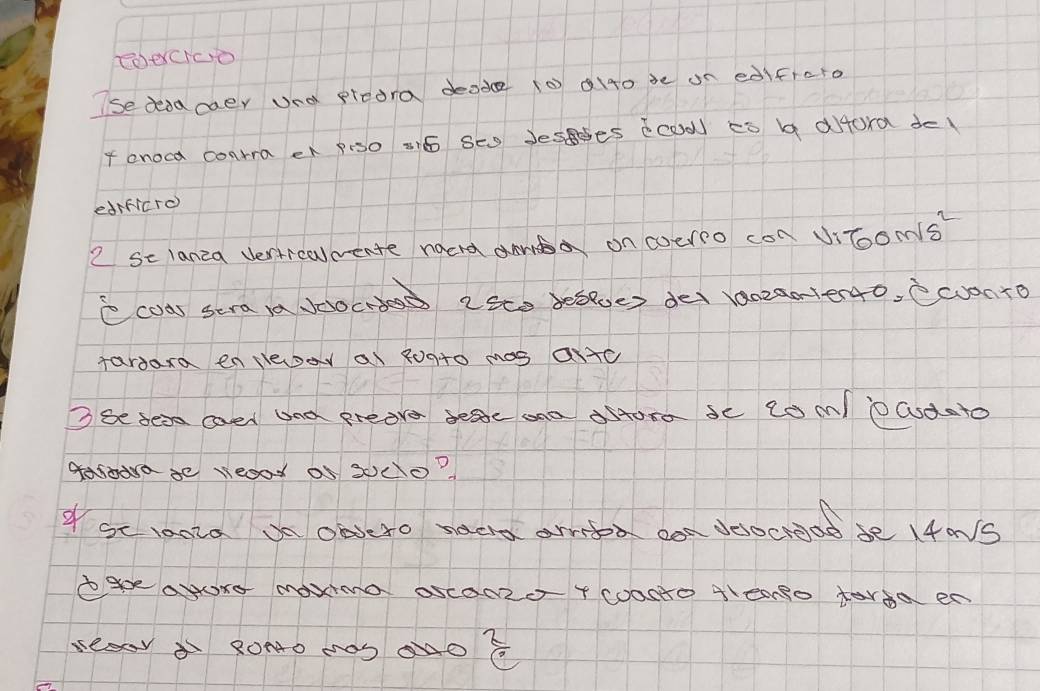 Ejercicio
1 se deja caer una piedra desde lo alto de un edificio
y choca contra el piso 3.5 seg despues ¿cual es la altura del
edificio
2 se lanza verticalmente hacia arriba un cuerpo con Vi 50 m/s²
¿ cual sera la velocidad 2 seg despues del lanzamiento, ¿cuanto
tardara en llegar al punto mas alto
3 se deja caer una piedra desde una altura de 20 m/ ¿cuanto
tardara de llegar al suelo?
4 se lanza un objeto hacia arriba con velocidad de 14 m/s
¿que altura maxima alcanzo y cuanto tiempo tarda en
llegar al punto mas alto ?